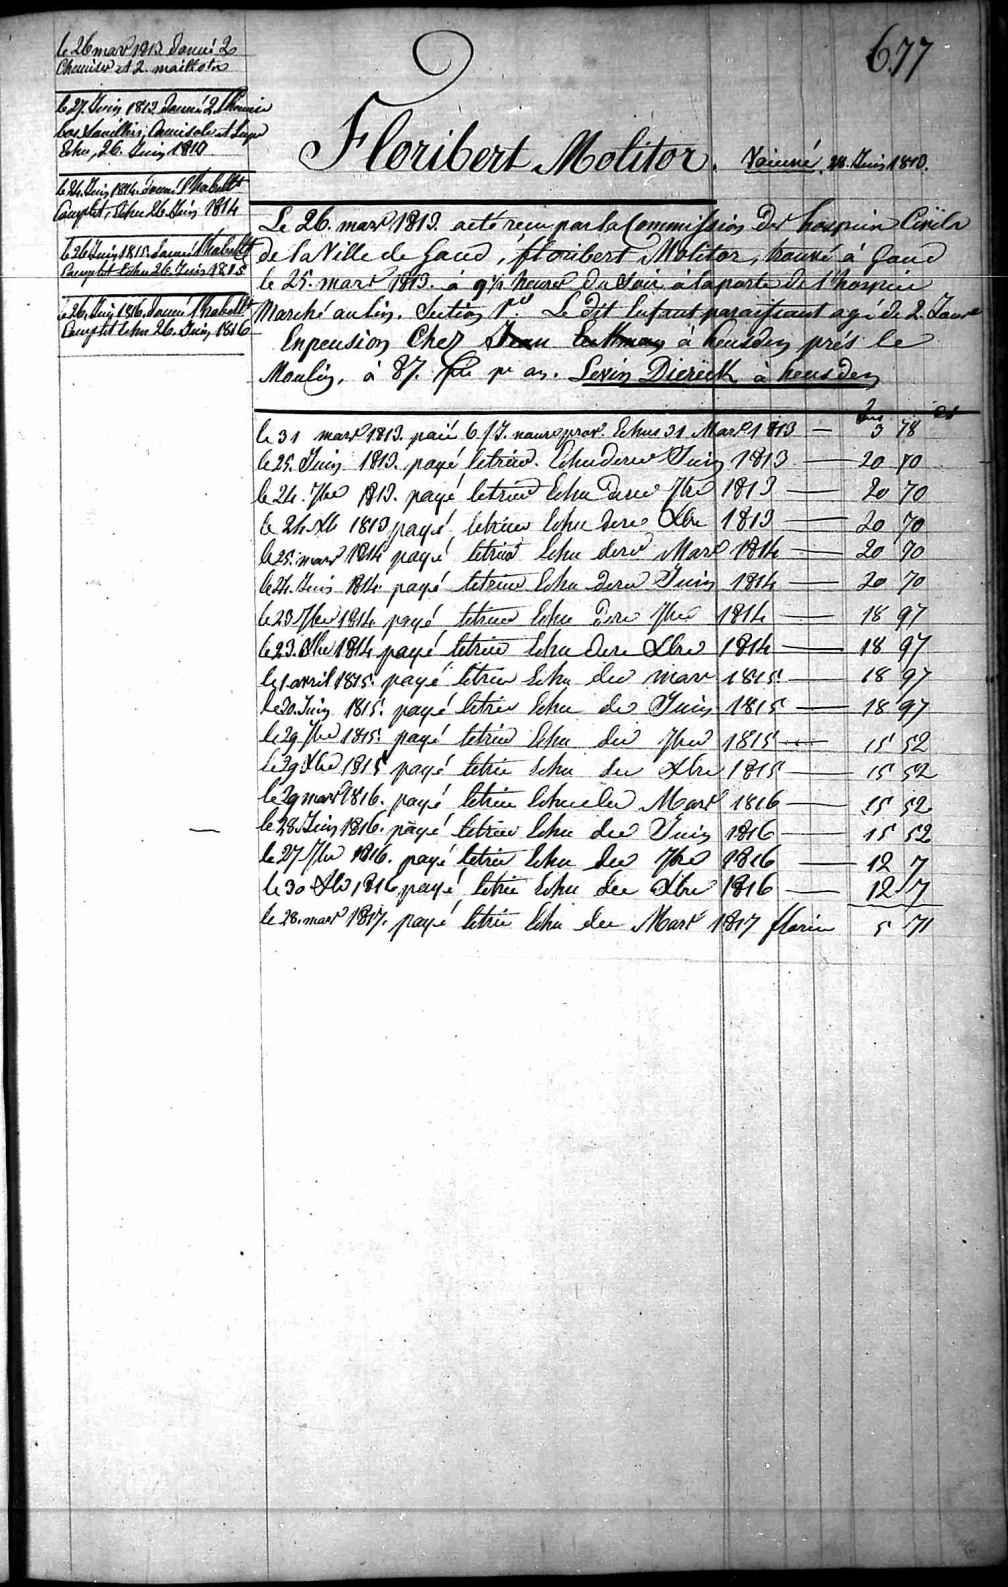 677
le 26 mars 1813 donné 2
Chemises et 2. maillots
le 27. Juin 1813 donné 2 Chemises
bas Souilliers, Camisole et Linge
Echu, 26. Juin 1813
le 24. Juin 1814. donné l'habillt
Complet, Echu 26 Juin 1814
le 26 Juin 1815. donné l'habillt
Complet Echu 26 Juin 1815
le 26. Juin 1816. donné l'habillt
Complet Echu 26. Juin 1816
Floribert Molitor. Vaicuné. 28. Juin 1813.
Le 26. mars 1813. a été reçu par la Commission des hospices Civils
de la Ville de Gand, floribert Molitor, trouvé à Gand
le 25. mars 1813. à 9½ heures du Soir à la porte de l'hospice
Marché au Lin. Section 1re. Le dit Enfant paraissant agé de 2. Jours
En pension Chez Jean à heusden près le
Moulin, à 87. fcs pr an. Levin Dierick à heusden
le 31 mars 1813. paié 6. Js. nours prov. Echus 31 Mars 1813 — 3 78
le 25. Juin 1813. payé letrim. Echu dere Juin 1813 — 20 70
le 24. 7bre 1813. payé letrim Echu dere 7bre 1813 — 20 70
le 24 Xb 1813 payé, letrim Echu dere Xbre 1813 — 20 70
le 25. mars 1814 payé letrim Echu dere Mars 1814 — 20 70
le 24. Juin 1814. payé letrim Echu dere Juin 1814 — 20 70
le 23 7bre 1814 payé letrim Echu dere 7bre 1814 — 18 97
le 23. Xbre 1814 payé letrim Echu dere Xbre 1814 — 18 97
le 1 avril 1815. payé letrim Echu der mars 1815 — 18 97
le 30. Juin 1815. payé letrim Echu der Juin 1815 — 18 97
le 29 7bre 1815. payé letrim Echu der 7bre 1815 — 15 52
le 29 Xbre 1815 payé letrim Echu der Xbre 1815 — 15 52
le 29 mars 1816. payé letrim Echu der Mars 1816 — 15 52
le 28. Juin 1816. payé letrim Echu der Juin 1816 — 15 52
le 27 7bre 1816. payé letrim Echu der 7bre 1816 — 12 7
le 30 Xbre 1816 payé letrim Echu der Xbre 1816 — 12 7
le 28. mars 1817. payé letrim Echu der Mars 1817 florin 5 71